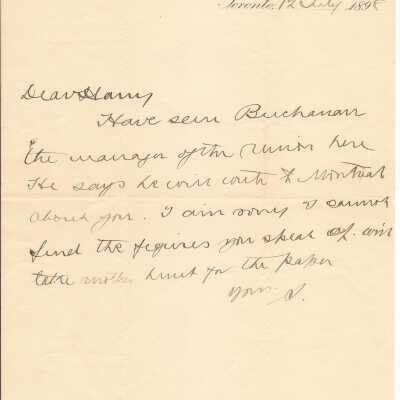 Toronto, 12 July 1898
Dear Harry
Have seen Buchanan
the manager of the Union here
He says he will write to Montreal
about you. I am sorry I cannot
find the figures you speak of. will
take another hunt for the paper
Yours